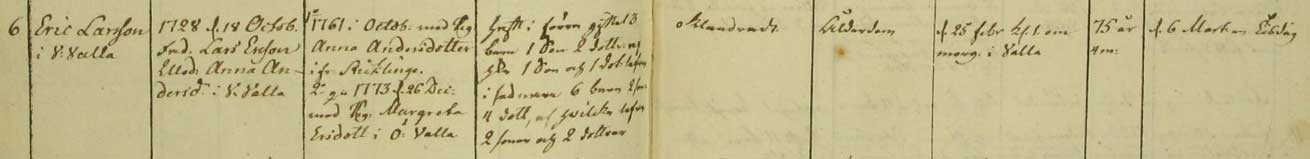 6 Eric Larsson
i V. Valla
1728 d. 18 Octob.
Fad. Lars Ersson
Anna An-
dersd. i V. Valla
1761 i Octob: med Pig.
Anna Andersdotter
ifr.
2:a g. 1773 d. 26 Dec:
med Pig: Margreta
Ersdott i Ö: Valla
haft i förra giftet 3
barn 1 Son 2 dottrar af
hvilka 1 Son och 1 dott. lefva
i sednare 6 barn 2 son.
4 dott, af hvilka lefva
2 söner och 2 dottrar
Ålderdom
d. 25 febr kl. 1 om
morg. i Valla
75 år
4 m:
d. 6 Mart. en Tisdag